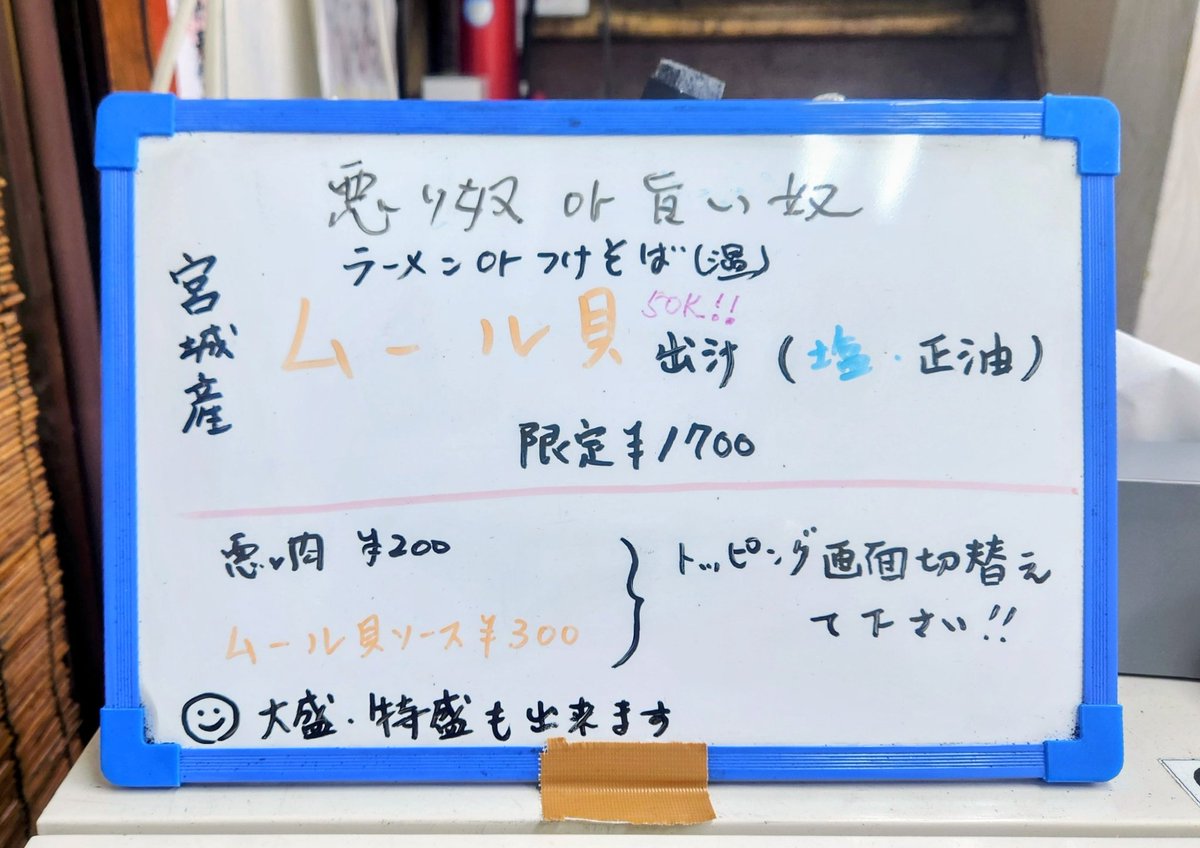 悪い奴 or 旨い奴
ラーメン or つけそば(温)
宮城産
ムール貝 50K!! 出汁 (塩・正油)
限定 ¥1700
悪い肉 ¥200
ムール貝ソース ¥300
トッピング画面切替え
て下さい!!
大盛・特盛も出来ます